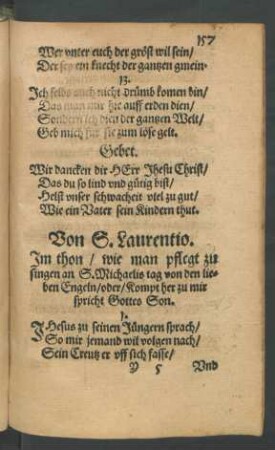 157
Wer vnter euch der gröst wil sein/
Der sey ein knecht der gantzen gmein.
13.
Ich selbs auch nicht drümb komen bin/
Das man mir hie auff erden dien/
Sondern ich dien der gantzen Welt/
Geb mich für sie zum löse gelt.
Gebet.
Wir dancken dir HErr Jhesu Christ/
Das du so lind vnd gütig bist/
Helst vnser schwacheit viel zu gut/
Wie ein Vater sein Kindern thut.
Von S. Laurentio.
Im thon/ wie man pflegt zu
singen an S. Michaelis tag von den lie-
ben Engeln/oder/Kompt her zu mir
spricht Gottes Son.
1.
JHesus zu seinen Jüngern sprach/
So mir jemand wil volgen nach/
Sein Creutz er vff sich fasse/
Y 5 Vnd